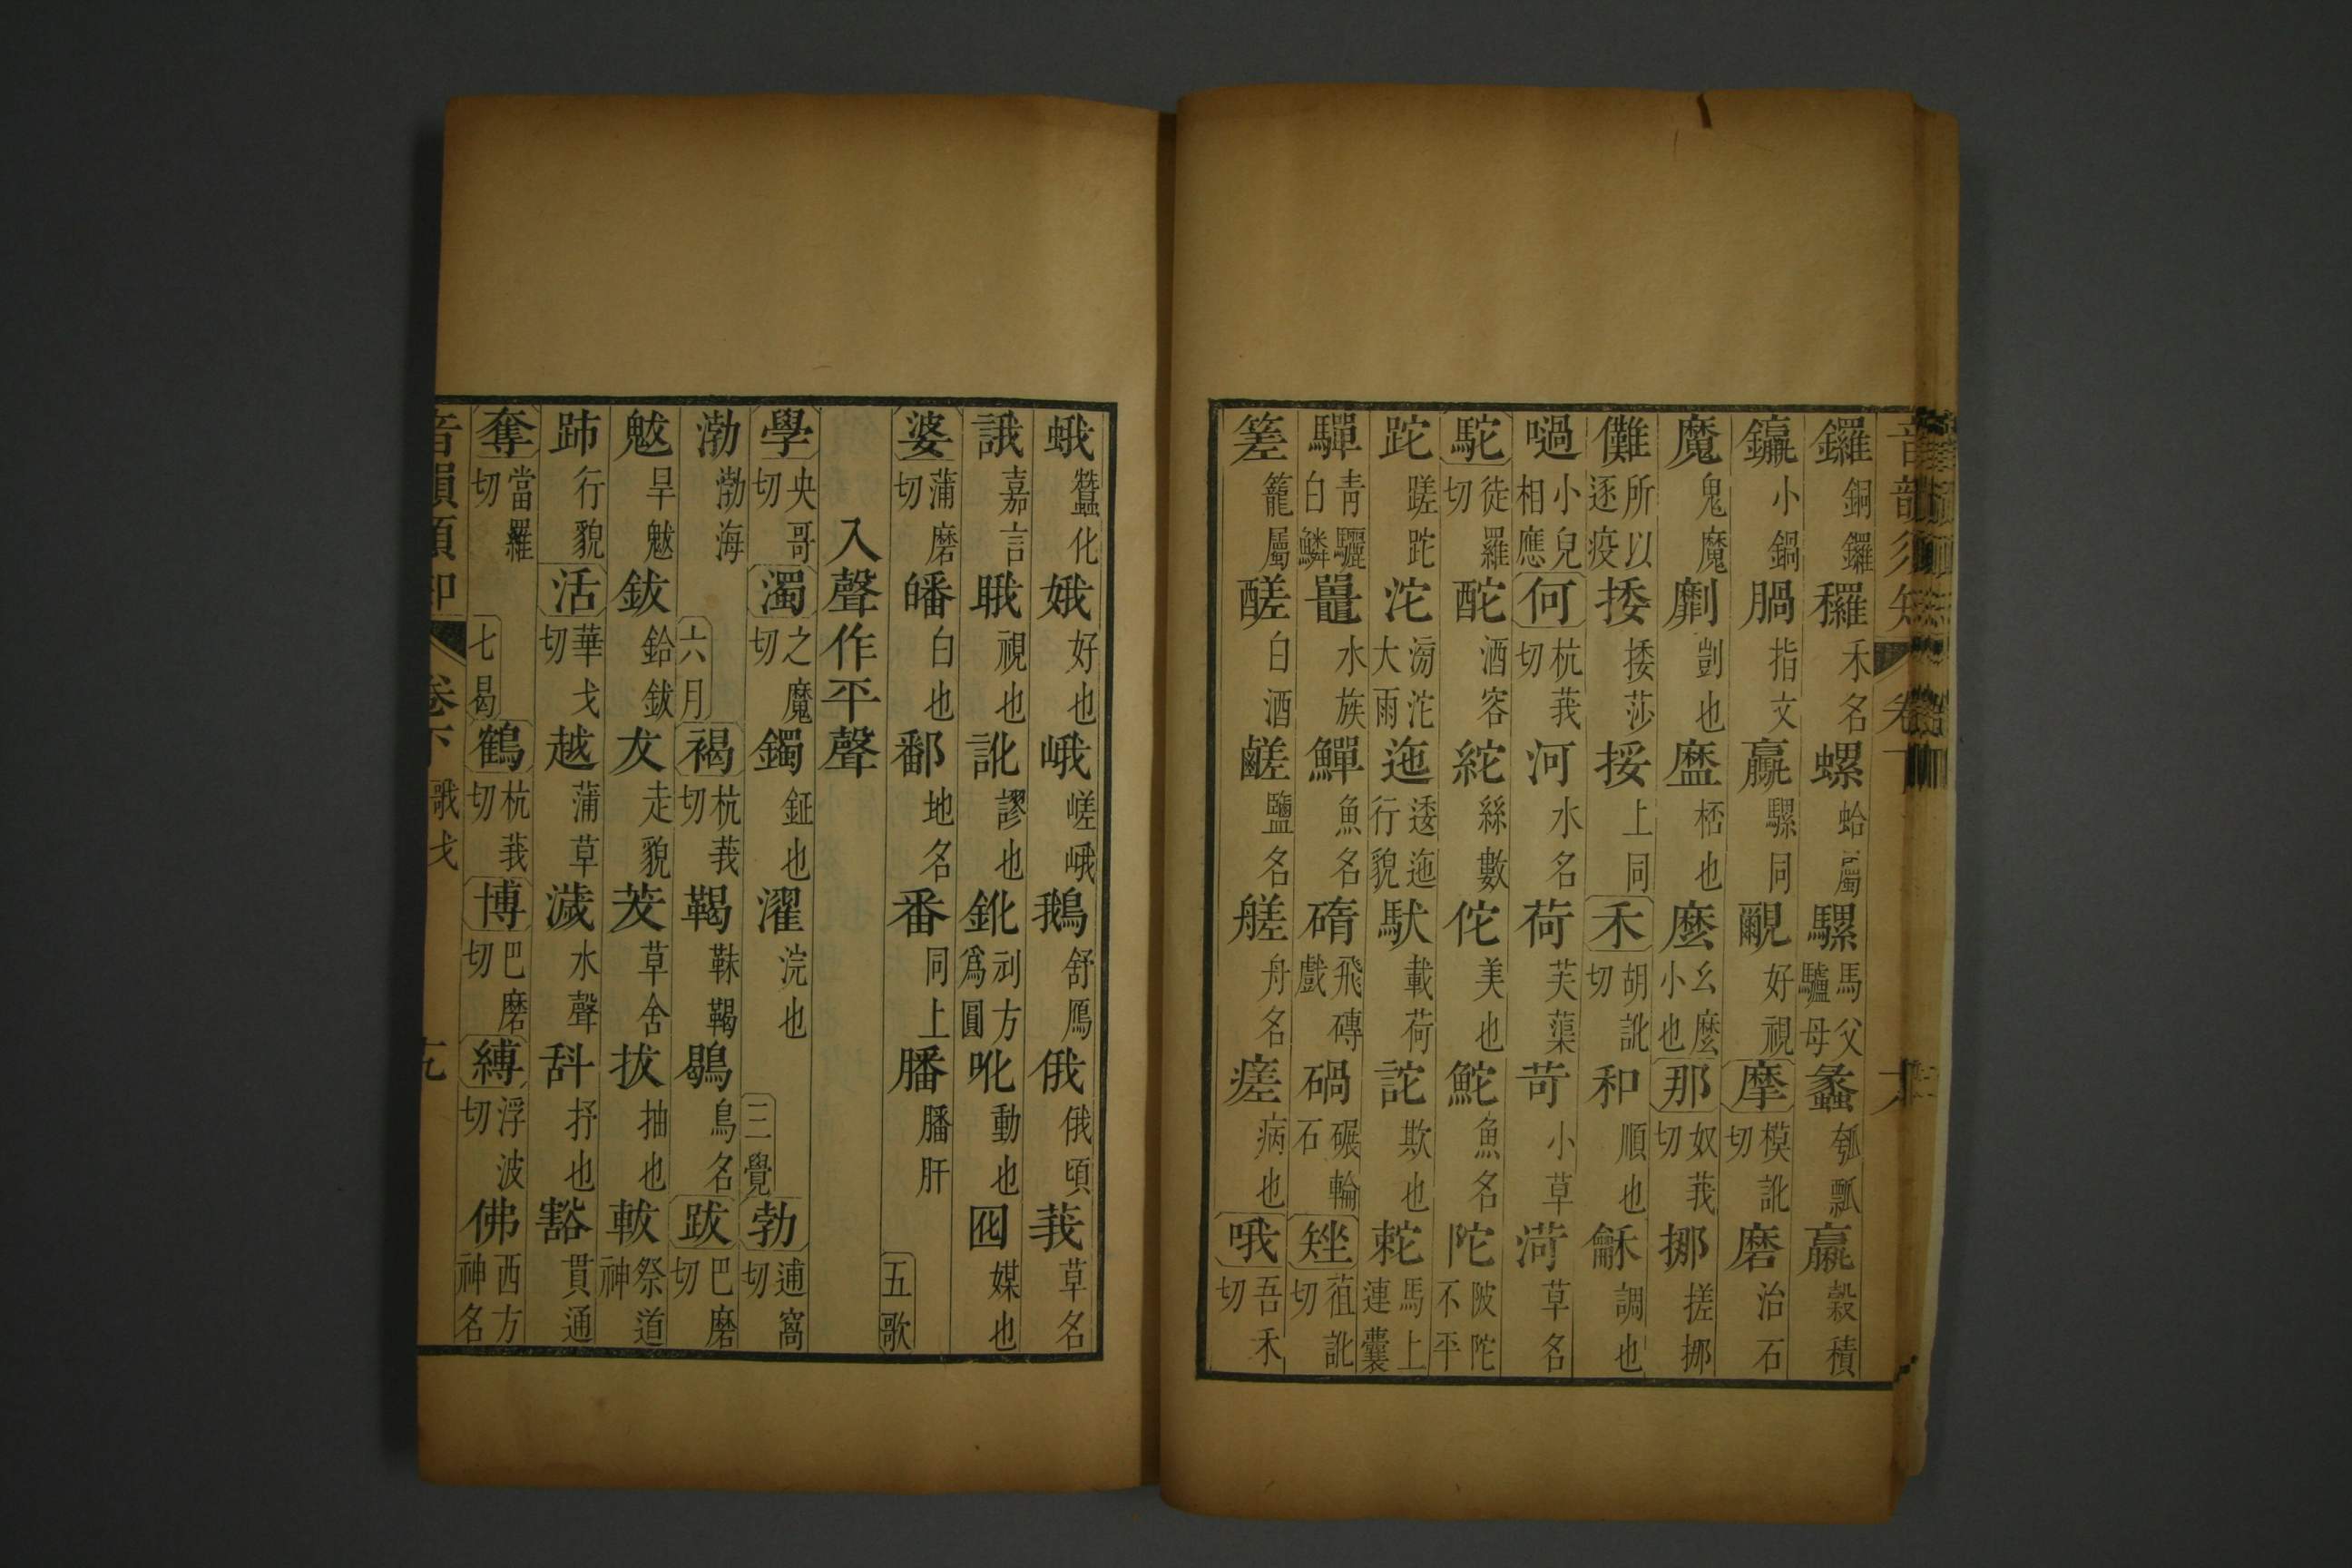 音韻須知 卷下
鑼銅鑼 䆉禾名 螺蛤屬 騾馬父驢母 蠡瓠瓢 穀積
鏍小鍋 腡指文 驘騾同 覶好視 摩模訛切 磨治石
魔鬼魔 劘剴也 桮也 麼幺麼小也 那奴莪切 挪搓挪
儺所以逐疫 捼捼莎 挼上同 禾胡訛切 和順也 龢調也
喎小兒相應 何杭莪切 河水名 荷芙蕖 苛小草 菏草名
駝徒羅切 酡酒容 紽絲數 佗美也 鮀魚名 陀陂陀不平
跎蹉跎 沱滂沱大雨 迤逶迤行貌 馱載荷 詑欺也 馬上連囊
驒青驪白鱗 鼉水族 鱓魚名 碢飛磚戲 碾輪石 矬徂訛切
䇟籠屬 醝白酒 鹺鹽名 艖舟名 瘥病也 哦吾禾切
蛾蠶化 娥好也 峨嵯峨 鵝舒鴈 俄俄頃 莪草名
誐嘉言 睋視也 訛謬也 鈋刓方爲圓 吪動也 囮媒也
婆蒲磨切 皤白也 鄱地名 番同上 膰膰肝 五歌
入聲作平聲
學央哥切 濁之魔切 鐲鉦也 濯浣也 三覺 勃逋窩切
渤渤海 六月 褐杭莪切 鞨靺鞨 鶡鳥名 跋巴磨切
魃旱魃 鈸鉿鈸 犮走貌 茇草舍 拔抽也 軷祭道神
𨀉行貌 活華戈切 越蒲草 濊水聲 㪵抒也 豁貫通
奪當羅切 七曷 鶴杭莪切 博巴磨切 縛浮波切 佛西方神名
音韻須知 卷下 歌戈 九